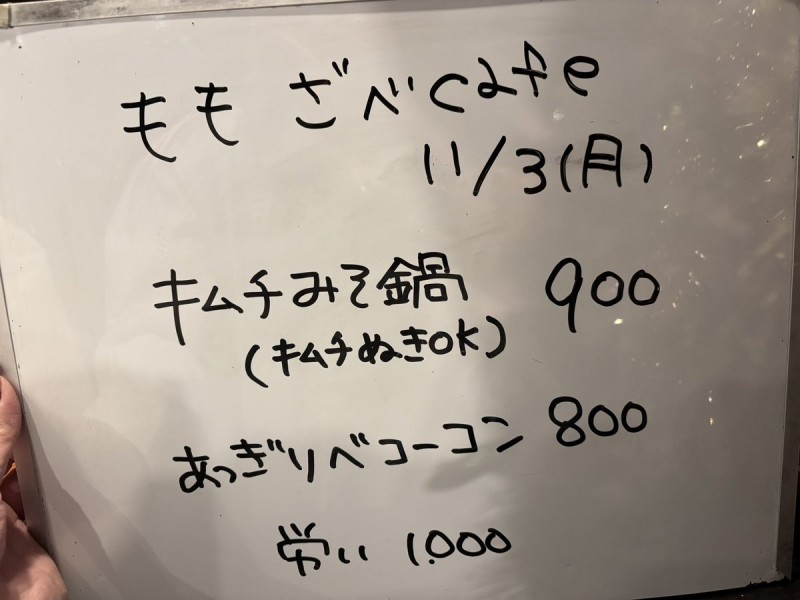 もも ざべcafe
11/3(月)
キムチみそ鍋 900
(キムチぬきOK)
あっぎりベーコン 800
労い 1.000